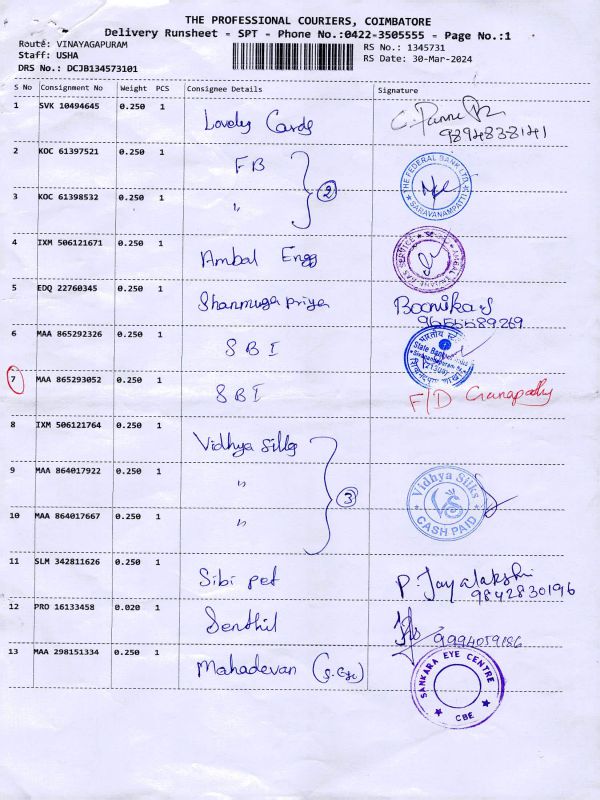 THE PROFESSIONAL COURIERS, COIMBATORE
Delivery Runsheet - SPT - Phone No.:0422-3505555 - Page No.:1
Route: VINAYAGAPURAM
Staff: USHA
DRS No.: DCJB134573101
RS No.: 1345731
RS Date: 30-Mar-2024
S No Consignment No Weight PCS Consignee Details Signature
1 SVK 10494645 0.250 1 Lovely Cards
9894838141
2 KOC 61397521 0.250 1 FB
THE FEDERAL BANK LTD. SARAVANAMPATTI
3 KOC 61398532 0.250 1 "
2
4 IXM 506121671 0.250 1 Ambal Engg
GAS SERVICE
5 EDQ 22760345 0.250 1 Shanmuga priya Boomika.S
9655589269
6 MAA 865292326 0.250 1 SBI
भारतीय स्टेट
State Bank
7 MAA 865293052 0.250 1 SBI F/D Ganapathy
8 IXM 506121764 0.250 1 Vidhya Silks
9 MAA 864017922 0.250 1 "
3
Vidhya Silks
VS
CASH PAID
10 MAA 864017667 0.250 1 "
11 SLM 342811626 0.250 1 Sibi pet P. Jayalakshmi
9842830196
12 PRO 16133458 0.020 1 Senthil
9994059186
13 MAA 298151334 0.250 1 Mahadevan (S. Eye)
SANKARA EYE CENTRE
CBE